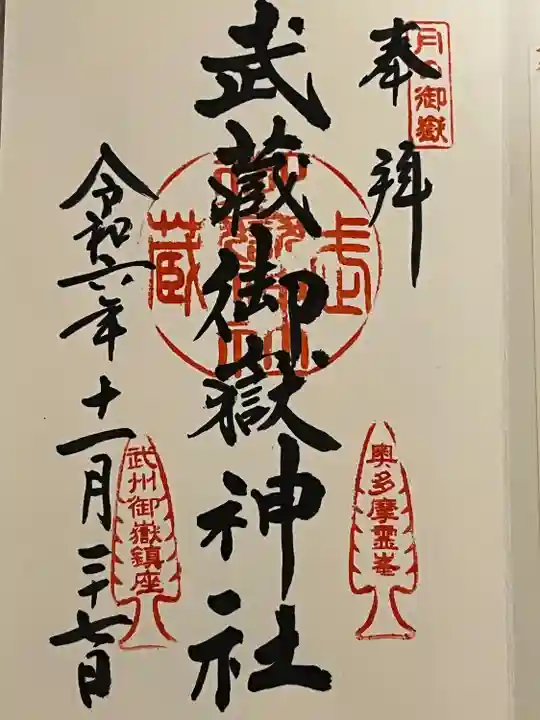 奉拝
月の御嶽
武蔵御嶽神社
武蔵
奥多摩霊峯
令和六年十一月二十七日
武州御嶽鎮座